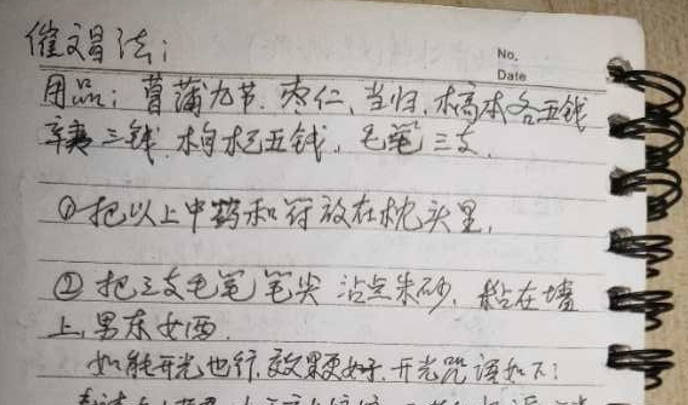 催文昌法；
No.
Date
用品；菖蒲九节、枣仁、当归、槁本各五钱
辛夷三钱 柏杞五钱、毛笔三支、
①把以上中药和符放在枕头里,
②把三支毛笔笔尖沾点朱砂、粘在墙
上,男东女西.
如能开光也行,效果更好.开光咒语如下: